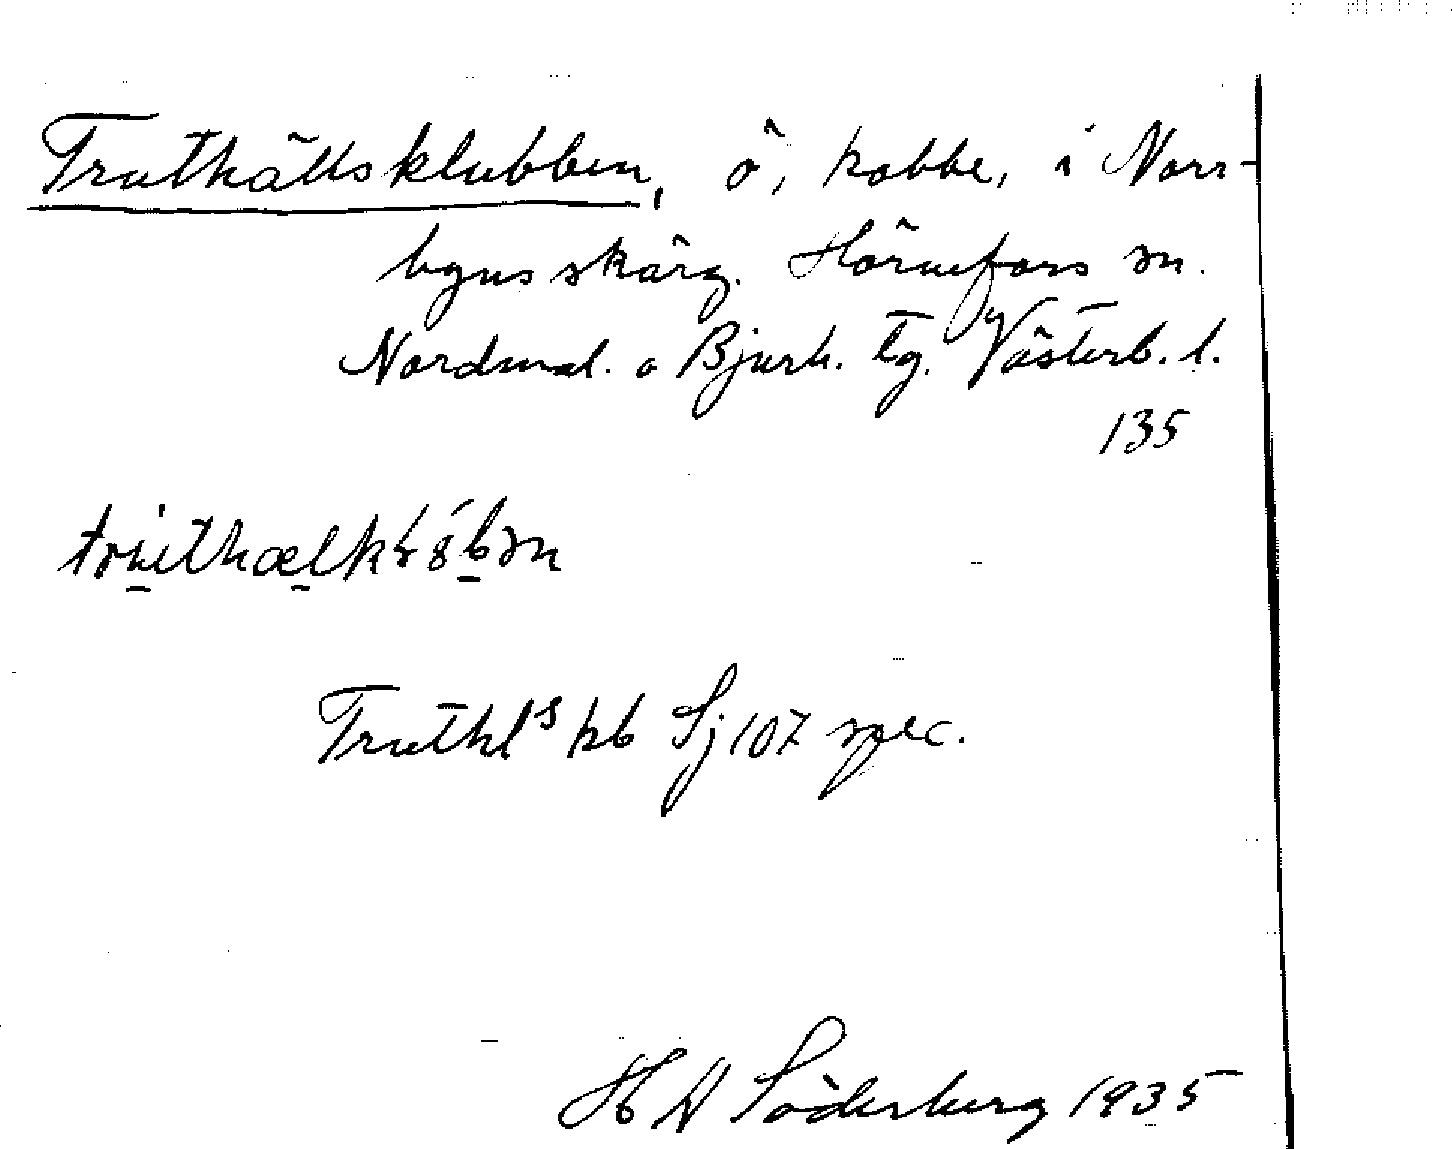 Truthällsklubben, ö, kobbe, i Norr-
byns skärg. Hörnefors sn.
Nordmal. o Bjurh. tg. Västerb. l.
135
Truthls kb Sj 107 spec.
H W Söderberg 1935